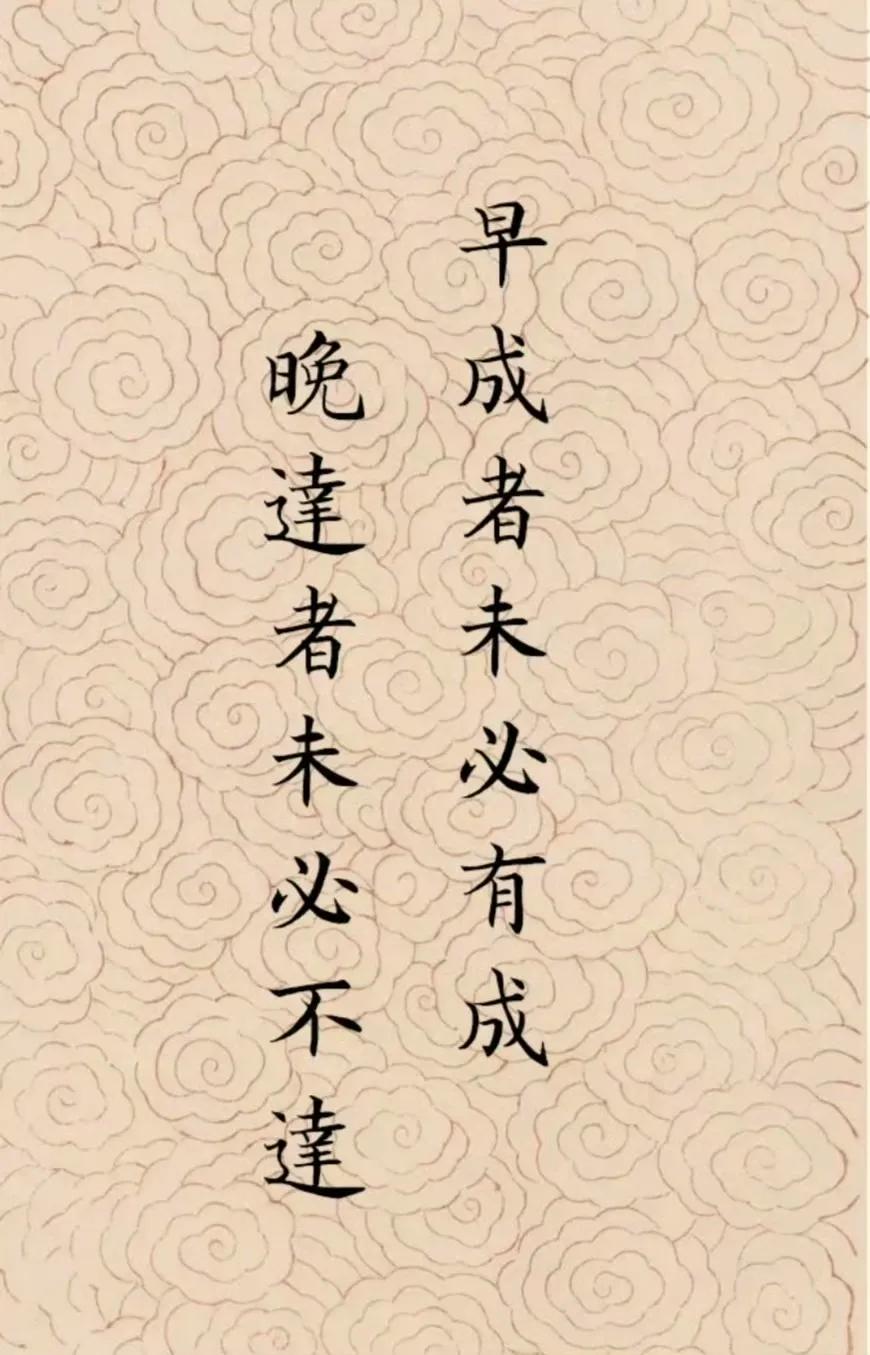 早成者未必有成
晚達者未必不達